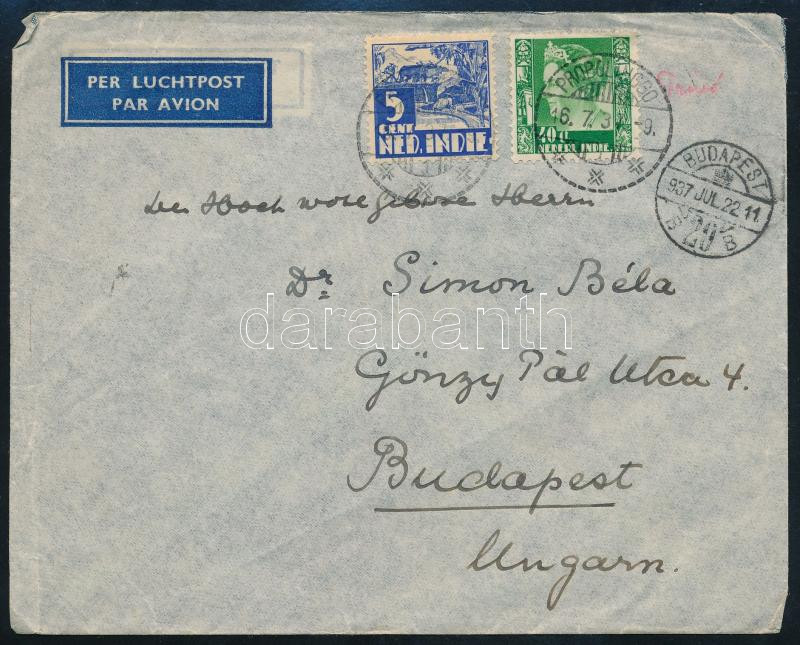 PER LUCHTPOST
PAR AVION
5
CENT
NED. INDIE
40 ct
NEDERL. INDIE
PROBOLINGGO
BUDAPEST
937 JUL. 22 11
B 20 B
Der Hoch wole gebore Herrn
Dr Simon Béla
darabanth
Gönzy Pál Utca 4.
Budapest
Ungarn.